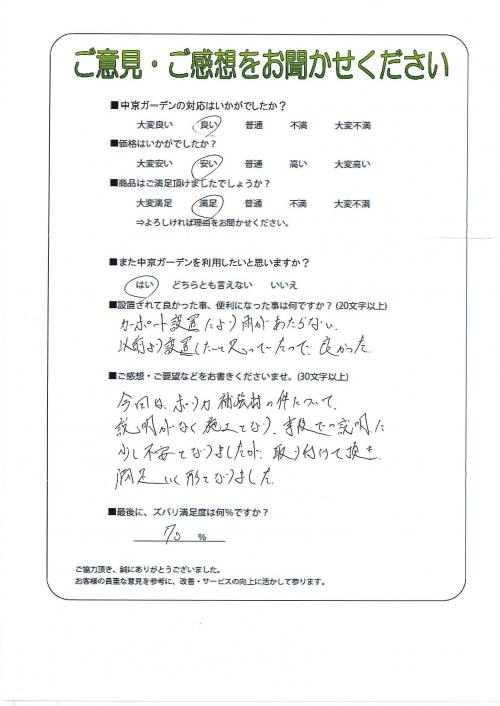 ご意見・ご感想をお聞かせください
■中京ガーデンの対応はいかがでしたか？
大変良い 良い 普通 不満 大変不満
■価格はいかがでしたか？
大変安い 安い 普通 高い 大変高い
■商品はご満足頂けましたでしょうか？
大変満足 満足 普通 不満 大変不満
⇒よろしければ理由をお聞かせください。
■また中京ガーデンを利用したいと思いますか？
はい どちらとも言えない いいえ
■設置されて良かった事、便利になった事は何ですか？(20文字以上)
カーポート設置により雨があたらない、
以前より設置したいと思っていたので、良かった
■ご感想・ご要望などをお書きくださいませ。(30文字以上)
今回は、ポリカ補強材の件について、
説明がなく施工となり、事後での説明に
少し不安となりましたが、取り付けて頂き、
満足いく形となりました。
■最後に、ズバリ満足度は何％ですか？
70 %
ご協力頂き、誠にありがとうございました。
お客様の貴重な意見を参考に、改善・サービスの向上に活かして参ります。